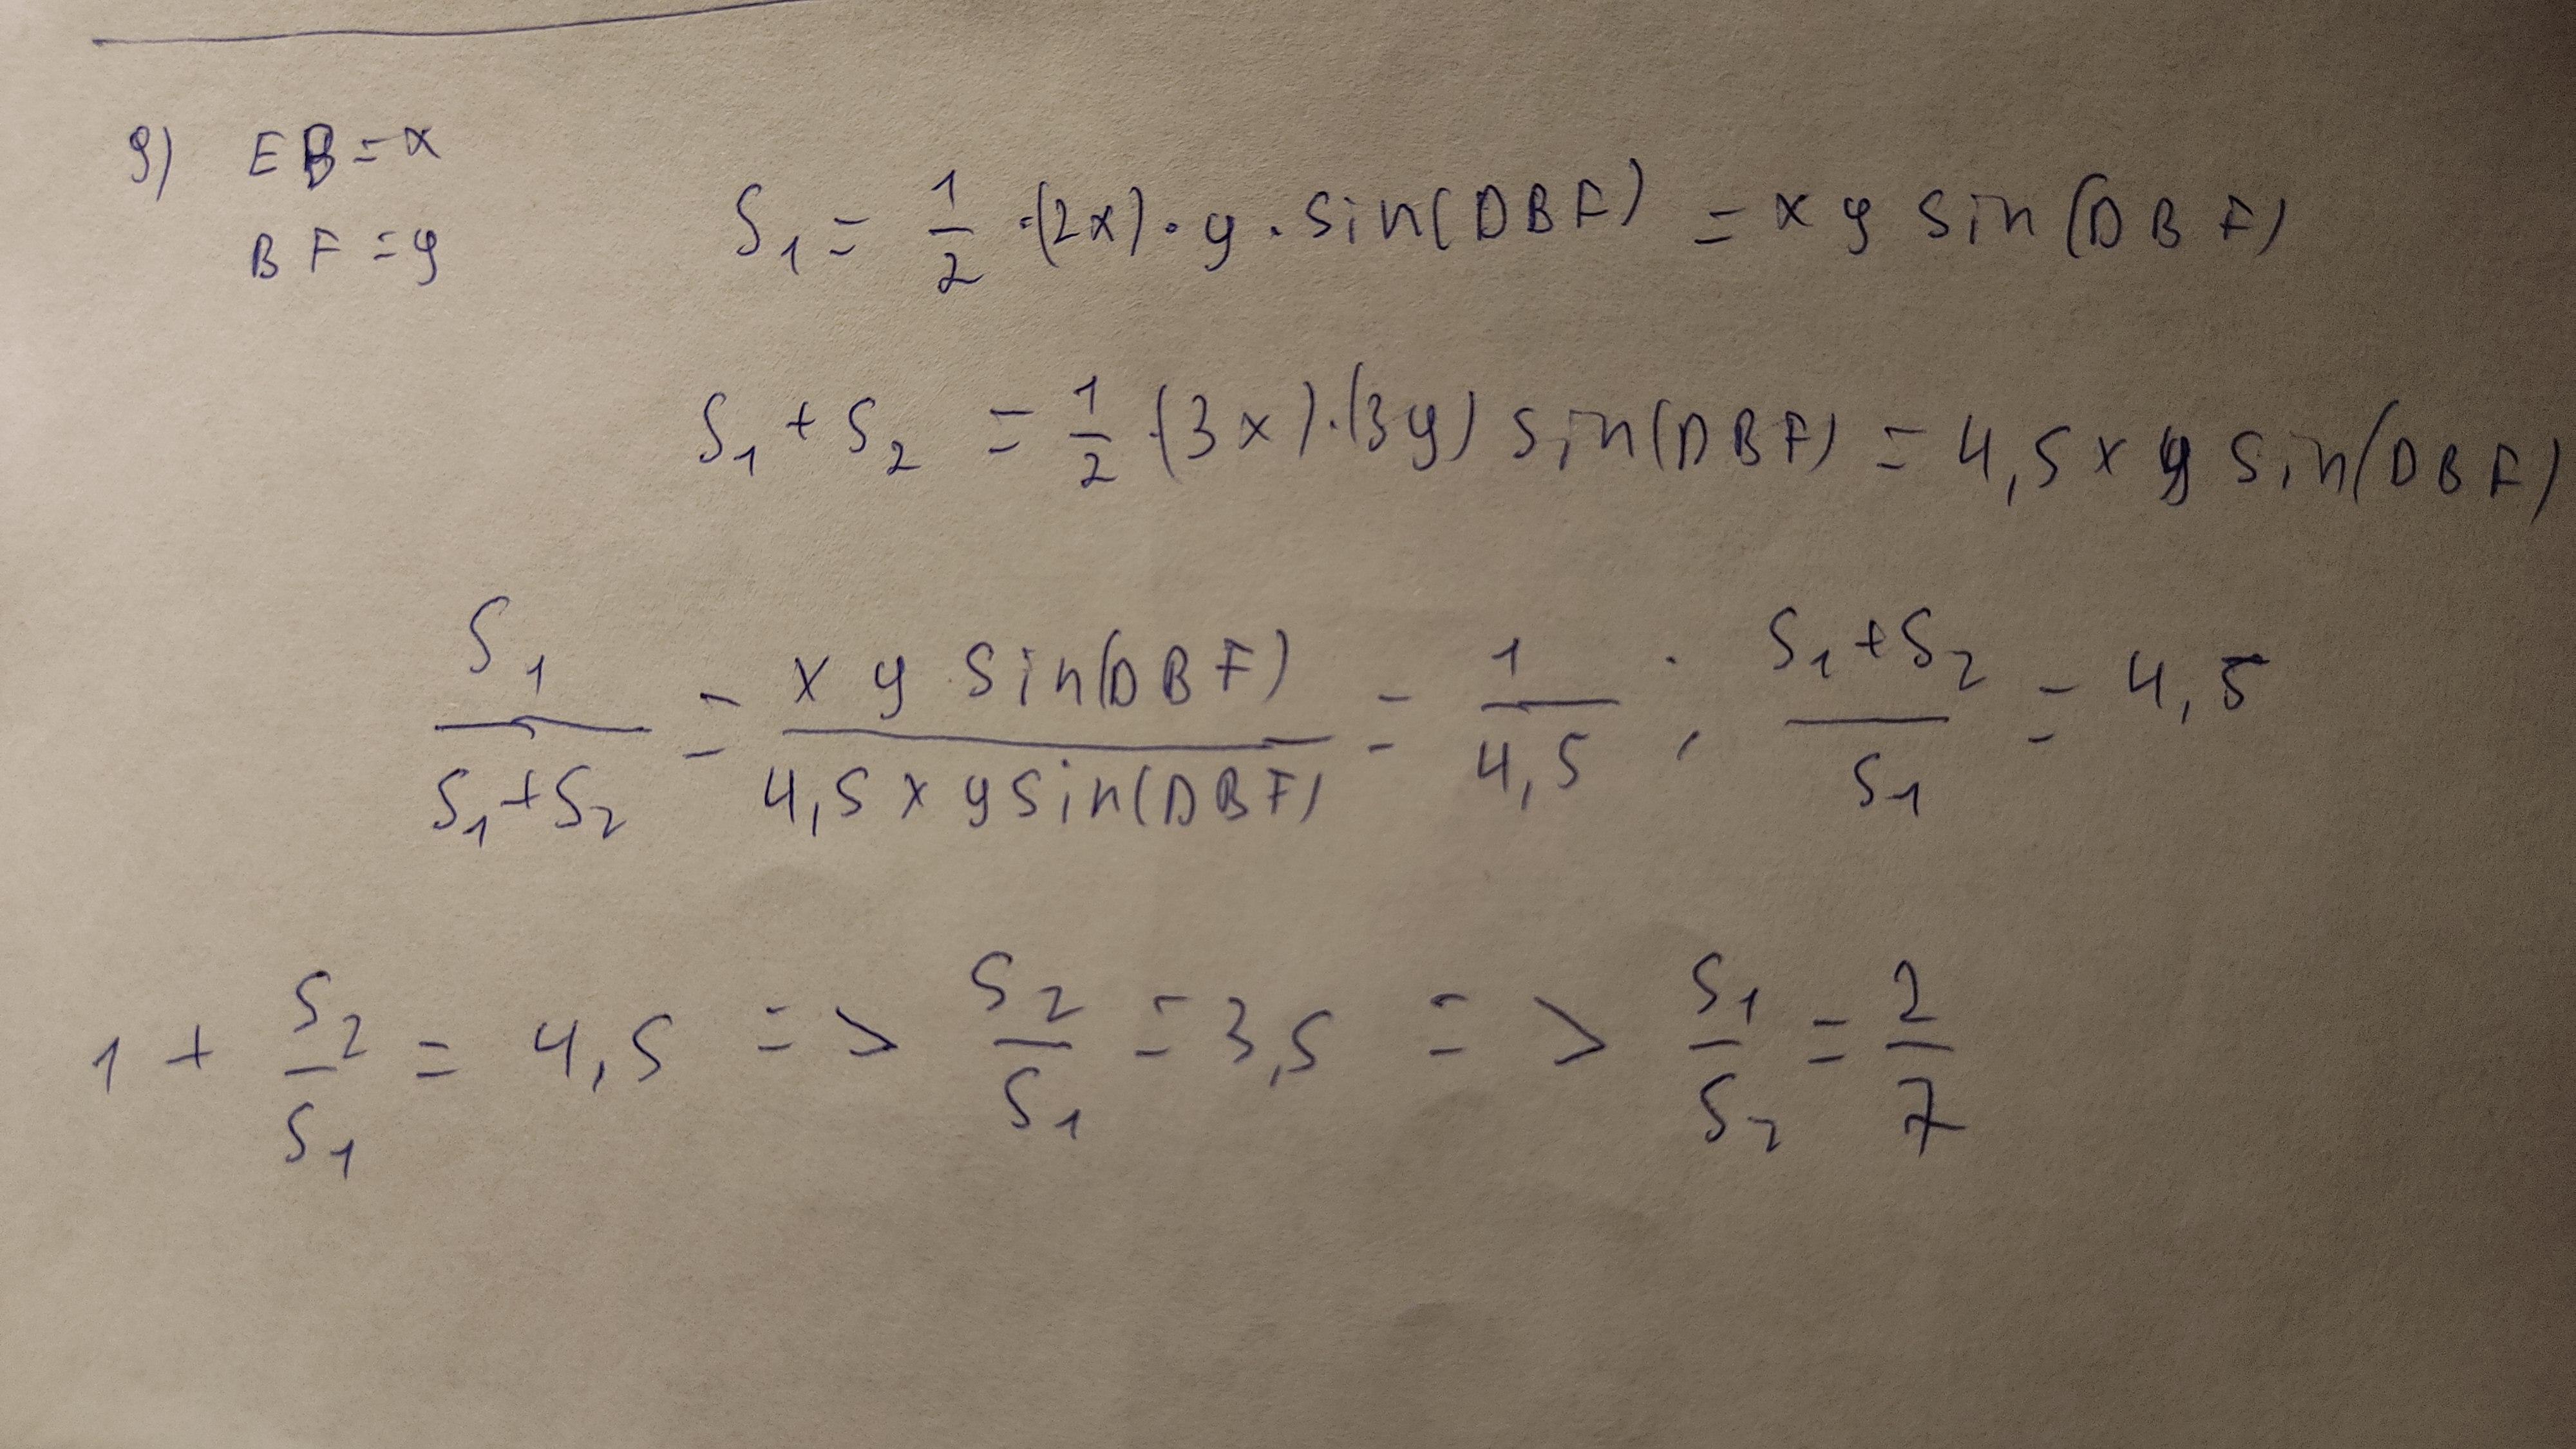 9) EB = x
BF = y
S₁ = 1/2 · (2x) · y · sin(DBF) = x y sin(DBF)
S₁ + S₂ = 1/2 · (3x) · (3y) sin(DBF) = 4,5 x y sin(DBF)
S₁/(S₁+S₂) = (x y sin(DBF))/(4,5 x y sin(DBF)) = 1/4,5 ; (S₁+S₂)/S₁ = 4,5
1 + S₂/S₁ = 4,5 => S₂/S₁ = 3,5 => S₁/S₂ = 2/7